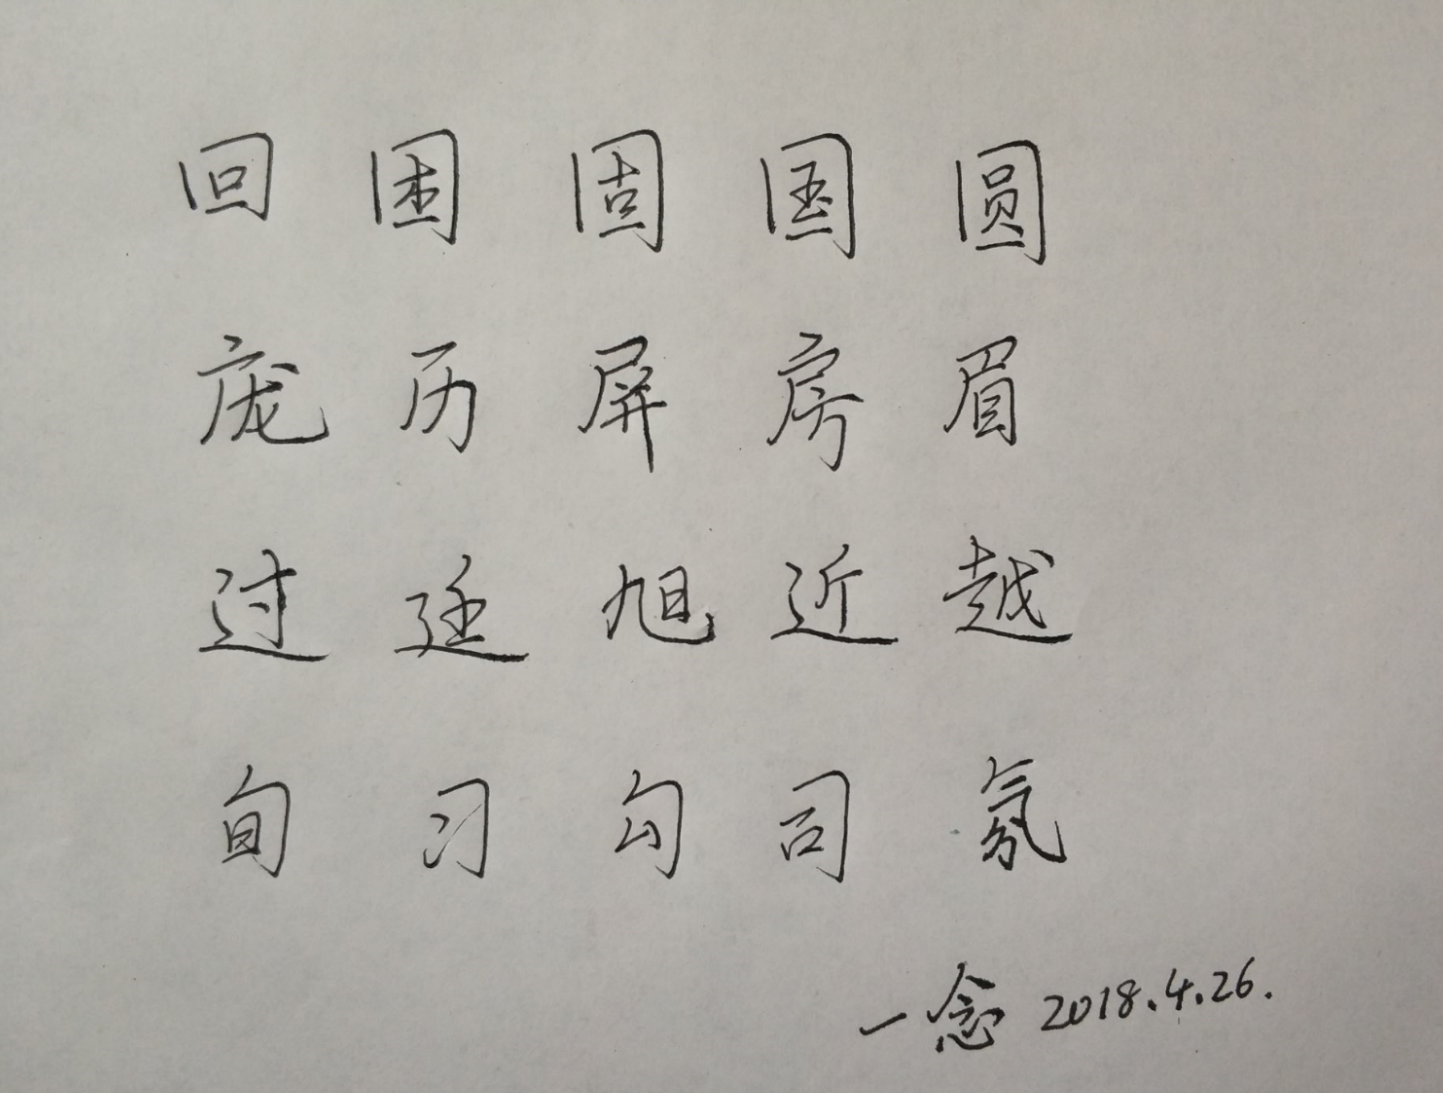 回 困 固 国 圆
庞 历 屏 房 眉
过 廷 旭 近 越
旬 习 勾 司 氛
一念 2018.4.26.